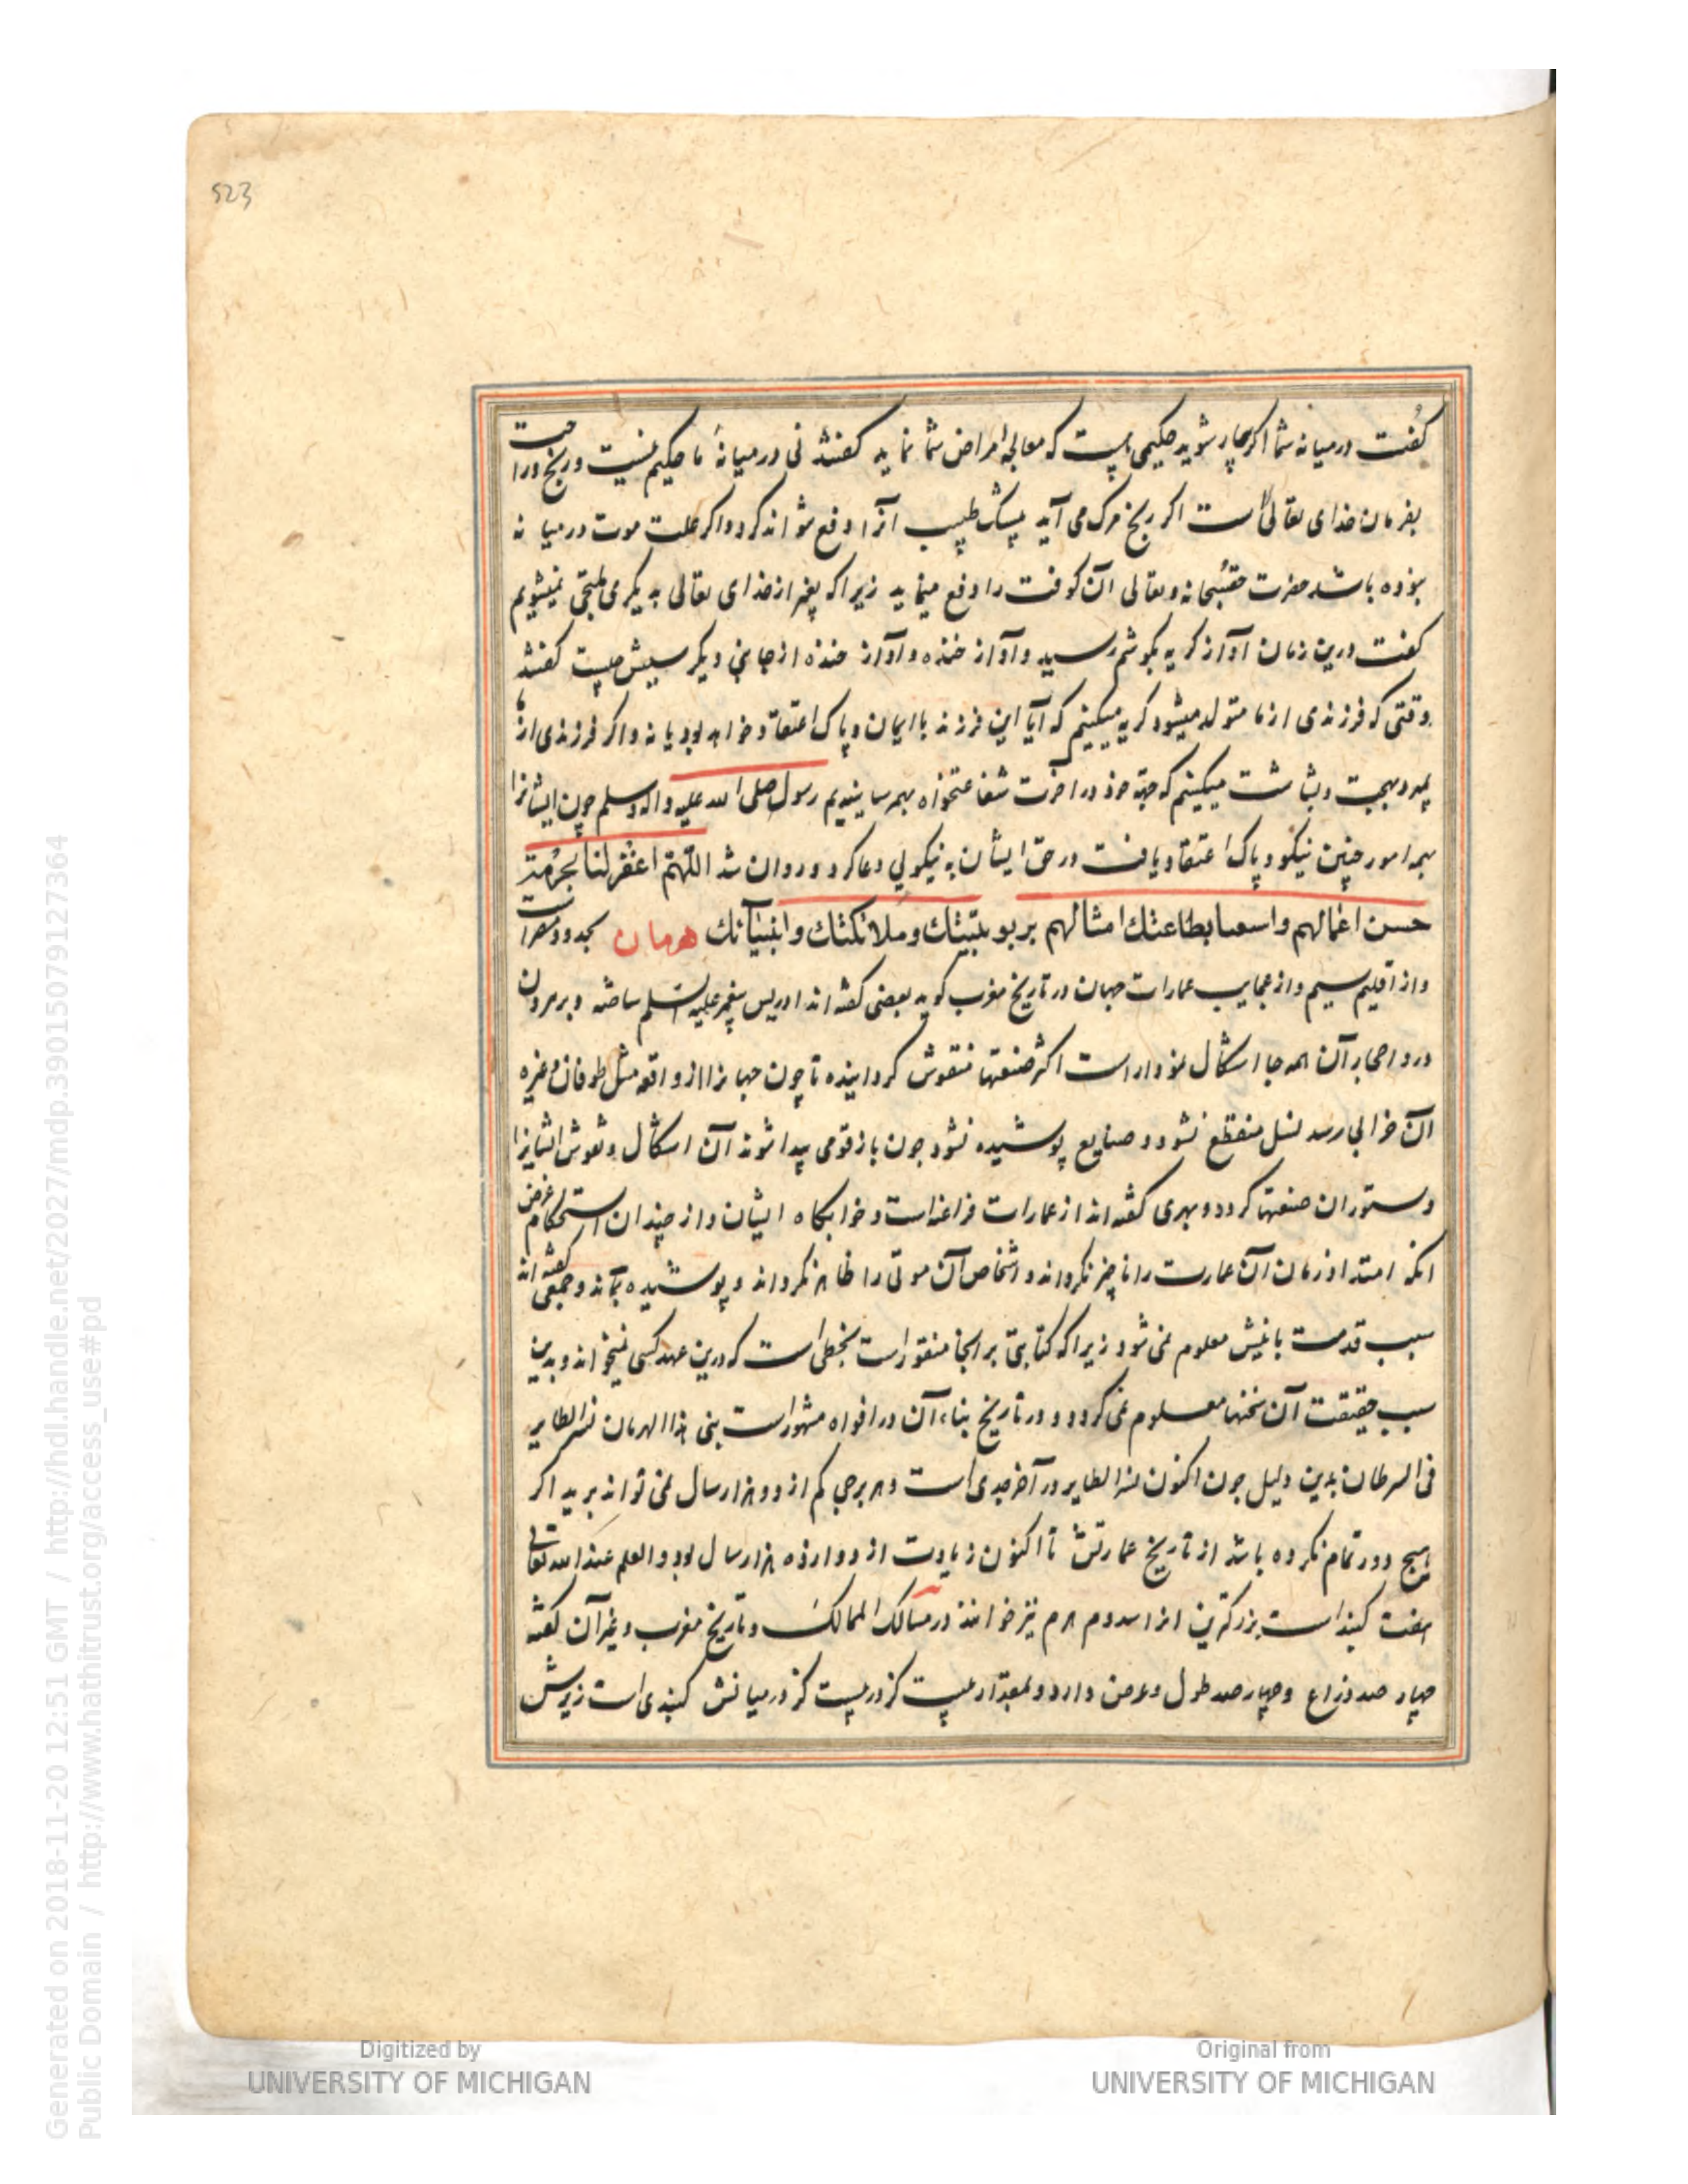 523
کفت درمیانه شما اکر بیمار شوید حکیمی هست که معالجه امراض شما نماید کفتند نی درمیانهٔ ما حکیم نیست و رنج و راحت
بفرمان خدای تعالی است اکر رنج مرک می آید پیشک طبیب آنرا دفع نتواند کرد و اکر علت موت درمیانه
نبوده باشد حضرت حق سبحانه و تعالی آن کوفت را دفع مینماید زیرا که بغیر از خدای تعالی بدیکری ملتجی نمیشویم
کفت درین زمان آواز کریه بکوشم رسید و آواز خنده و آواز خنده از جانبی دیکر سببش چیست کفتند
وقتی که فرزندی از ما متولد میشود کریه میکنیم که آیا این فرزند با ایمان و پاک اعتقاد خواهد بود یا نه و اکر فرزندی از ما
بمرد بهجت و بشاشت میکنیم که جهة خود در اخرت شفاعتخواه بهم رسانیدیم رسول صلی الله علیه و اله و سلم چون ایشانرا
بهمه امور چنین نیکو و پاک اعتقاد یافت در حق ایشان به نیکویی دعا کرد و روان شد اللهم اغفر لنا بحرمة
حسن اعمالهم واسعنا بطاعتك امثالهم بربوبيتك وملائكتك وانبيآئك هرمان بحدود مصر است
و از اقلیم سیم و از عجایب عمارات جهان در تاریخ مغرب کوید بعضی کفته اند ادریس پیغمبر علیه السلم ساخته و بر بیرون
درو احجار آن همه جا اشکال نمودار است اکثر صنعتها منقوش کردانیده تا چون جهانرا از واقعه مثل طوفان و غیره
آن خرابی رسد نسل منقطع نشود و صنایع پوشیده نشود چون باز قومی پیدا شوند آن اشکال و نقوش ایشانرا
دستوران صنعتها کردد و بهری کفته اند از عمارات فراعنه است و خوابکاه ایشان و از چندان استحکام غرض
انکه امتداد زمان آن عمارت را ناچیز نکرداند و اشخاص آن موتی را ظاهر نکرداند و پوشیده بماند و جمعی کفته اند
سبب قدمت بانیش معلوم نمی شود زیرا که کتابتی بر انجا منقور است بخطی است که درین عهد کسی نمیخواند و بدین
سبب حقیقت آن سخنها معلوم نمی کردد و در تاریخ بناء آن در افواه مشهور است بنی هذا الهرمان نسر الطایر
فی السرطان بدین دلیل چون اکنون نسر الطایر در آخر جدی است و هر برجی کم از دو هزار سال نمی تواند برید اکر
هیچ دور تمام نکرده باشد از تاریخ عمارتش تا اکنون زیادت از دوازده هزار سال بود و العلم عند الله تعالی
هفت کنبد است بزرکترین انرا هرم نیز خوانند در مسالک الممالک و تاریخ مغرب و غیر آن کفته
چهار صد ذراع و چهار صد طول و عرض دارد و بمقدار بیست کز در بیست کز درمیانش کنبدی است زیرش
Generated on 2018-11-20 12:51 GMT / http://hdl.handle.net/2027/mdp.39015079127364
Public Domain / http://www.hathitrust.org/access_use#pd
Digitized by
UNIVERSITY OF MICHIGAN
Original from
UNIVERSITY OF MICHIGAN